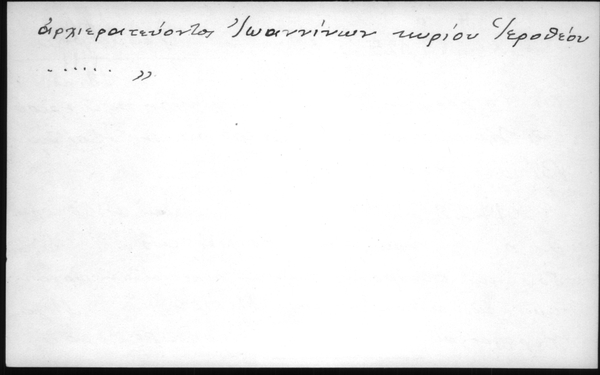 ἀρχιερατεύοντος Ἰωαννίνων κυρίου Ἱεροθέου
....... »